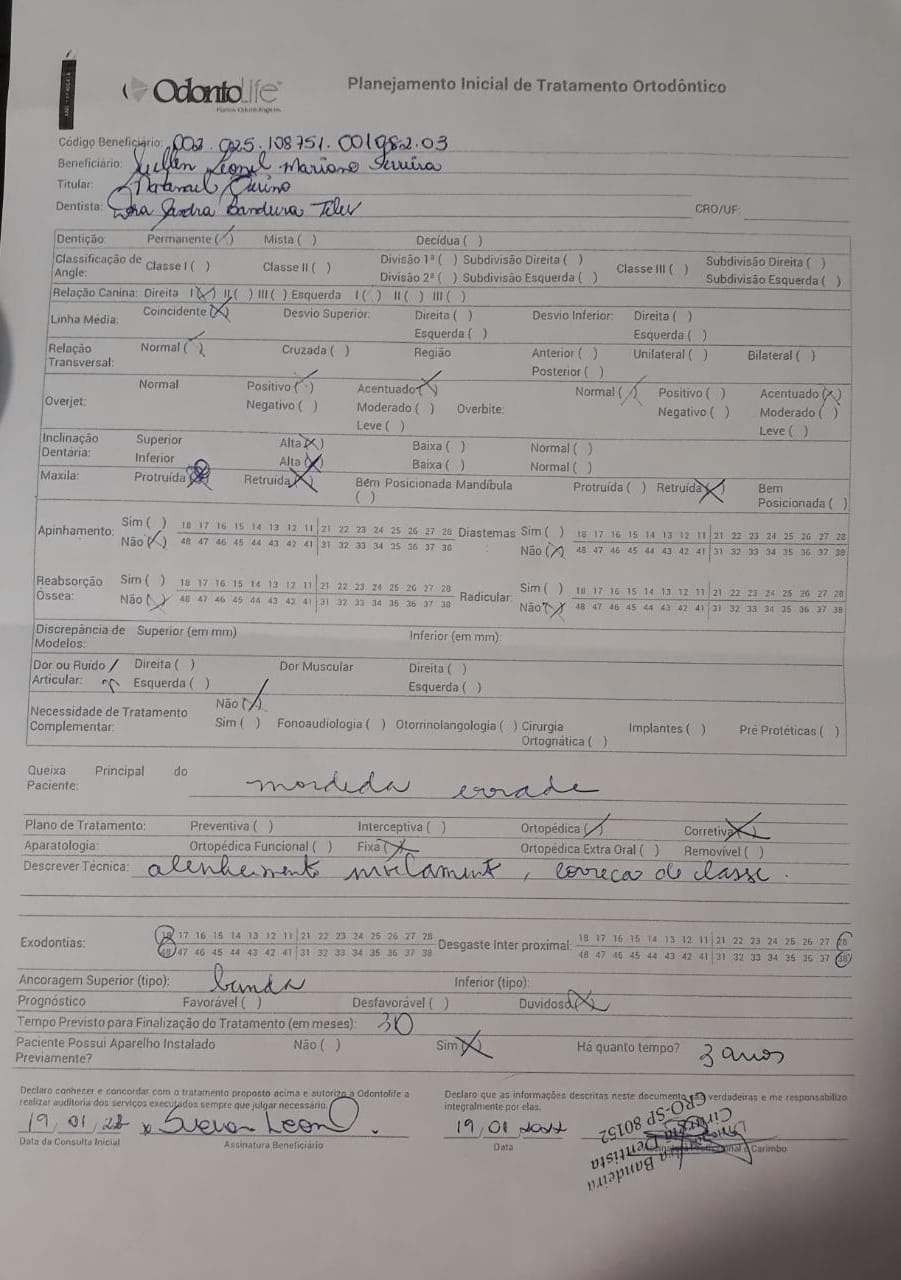 OdontoLife
Planos Odontológicos
Planejamento Inicial de Tratamento Ortodôntico
Código Beneficiário: 002.025.108751.001982.03
Beneficiário: Leonel Mariano
Titular:
Dentista: Bandeira
CRO/UF:
Dentição: Permanente (/) Mista ( ) Decídua ( )
Classificação de Angle: Classe I ( ) Classe II ( ) Divisão 1ª ( ) Subdivisão Direita ( ) Classe III ( ) Subdivisão Direita ( )
Divisão 2ª ( ) Subdivisão Esquerda ( ) Subdivisão Esquerda ( )
Relação Canina: Direita I (X) II ( ) III ( ) Esquerda I ( ) II ( ) III ( )
Linha Média: Coincidente (X) Desvio Superior: Direita ( ) Desvio Inferior: Direita ( )
Esquerda ( ) Esquerda ( )
Relação Transversal: Normal (/) Cruzada ( ) Região Anterior ( ) Unilateral ( ) Bilateral ( )
Posterior ( )
Overjet: Normal Positivo (/) Acentuado (X) Overbite: Normal (/) Positivo ( ) Acentuado (X)
Negativo ( ) Moderado ( ) Negativo ( ) Moderado ( )
Leve ( ) Leve ( )
Inclinação Dentária: Superior Alta (X) Baixa ( ) Normal ( )
Inferior Alta (X) Baixa ( ) Normal ( )
Maxila: Protruída Retruída (X) Bem Posicionada ( ) Mandíbula Protruída ( ) Retruída (X) Bem Posicionada ( )
Apinhamento: Sim ( ) 18 17 16 15 14 13 12 11 21 22 23 24 25 26 27 28 Diastemas Sim ( ) 18 17 16 15 14 13 12 11 21 22 23 24 25 26 27 28
Não (X) 48 47 46 45 44 43 42 41 31 32 33 34 35 36 37 38 Não (X) 48 47 46 45 44 43 42 41 31 32 33 34 35 36 37 38
Reabsorção Óssea: Sim ( ) 18 17 16 15 14 13 12 11 21 22 23 24 25 26 27 28 Radicular: Sim ( ) 18 17 16 15 14 13 12 11 21 22 23 24 25 26 27 28
Não (X) 48 47 46 45 44 43 42 41 31 32 33 34 35 36 37 38 Não (X) 48 47 46 45 44 43 42 41 31 32 33 34 35 36 37 38
Discrepância de Modelos: Superior (em mm) Inferior (em mm):
Dor ou Ruído Articular: Direita ( ) Dor Muscular Direita ( )
Esquerda ( ) Esquerda ( )
Necessidade de Tratamento Complementar: Não (X)
Sim ( ) Fonoaudiologia ( ) Otorrinolangologia ( ) Cirurgia Ortognática ( ) Implantes ( ) Pré Protéticas ( )
Queixa Principal do Paciente: mordida errada
Plano de Tratamento: Preventiva ( ) Interceptiva ( ) Ortopédica (/) Corretiva (X)
Aparatologia: Ortopédica Funcional ( ) Fixa (X) Ortopédica Extra Oral ( ) Removível ( )
Descrever Técnica: alinhamento nivelamento, correção de classe.
Exodontias: 18 17 16 15 14 13 12 11 21 22 23 24 25 26 27 28 Desgaste Inter proximal: 18 17 16 15 14 13 12 11 21 22 23 24 25 26 27 28
48 47 46 45 44 43 42 41 31 32 33 34 35 36 37 38 48 47 46 45 44 43 42 41 31 32 33 34 35 36 37 38
Ancoragem Superior (tipo): banda Inferior (tipo):
Prognóstico Favorável ( ) Desfavorável ( ) Duvidoso (X)
Tempo Previsto para Finalização do Tratamento (em meses): 30
Paciente Possui Aparelho Instalado Previamente? Não ( ) Sim (X) Há quanto tempo? 3 anos
Declaro conhecer e concordar com o tratamento proposto acima e autorizo a Odontolife a
realizar auditoria dos serviços executados sempre que julgar necessário.
Declaro que as informações descritas neste documento são verdadeiras e me responsabilizo
integralmente por elas.
19, 01, 22 x Leon
Data da Consulta Inicial Assinatura Beneficiário
19, 01
Data
Carimbo
Bandeira
Dentista
CRO-SP 80152